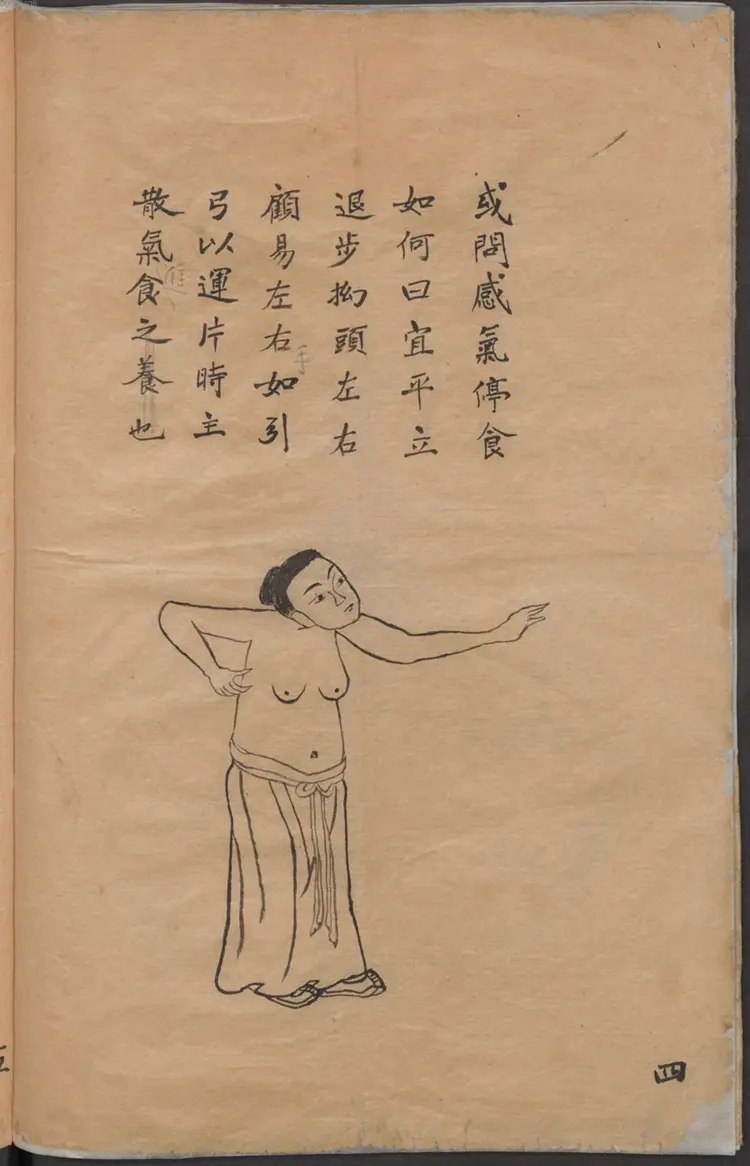 或問感氣停食
如何曰宜平立
退步拗頭左右
顧易左右如引
弓以運片時主
散氣食之養也
手
四
五